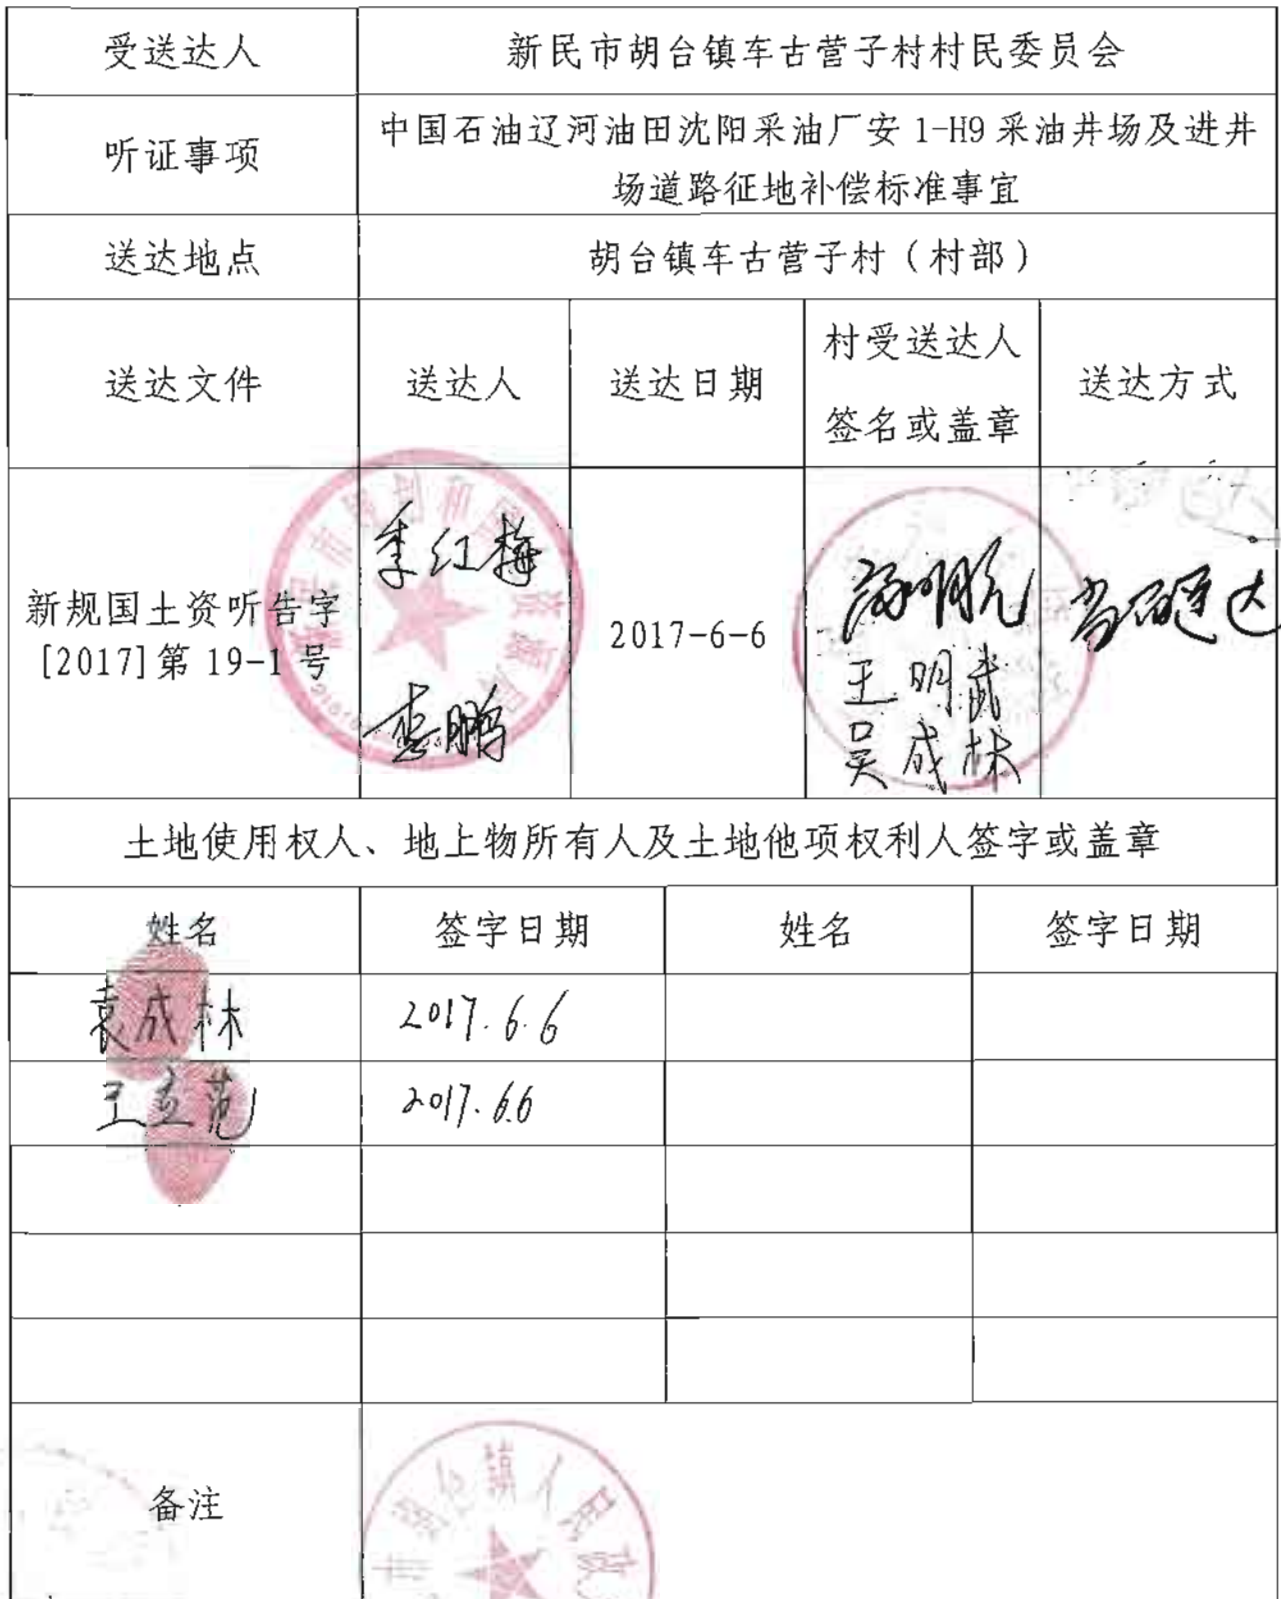 受送达人 新民市胡台镇车古营子村村民委员会
听证事项 中国石油辽河油田沈阳采油厂安1-H9采油井场及进井
场道路征地补偿标准事宜
送达地点 胡台镇车古营子村（村部）
送达文件 送达人 送达日期 村受送达人 送达方式
签名或盖章
季红梅
新规国土资听告字
[2017]第 19-1 号
2017-6-6
送达
王明武
李鹏
吴成林
土地使用权人、地上物所有人及土地他项权利人签字或盖章
姓名 签字日期 姓名 签字日期
袁成林 2017.6.6
王立范 2017.6.6
备注
市胡台镇人民政